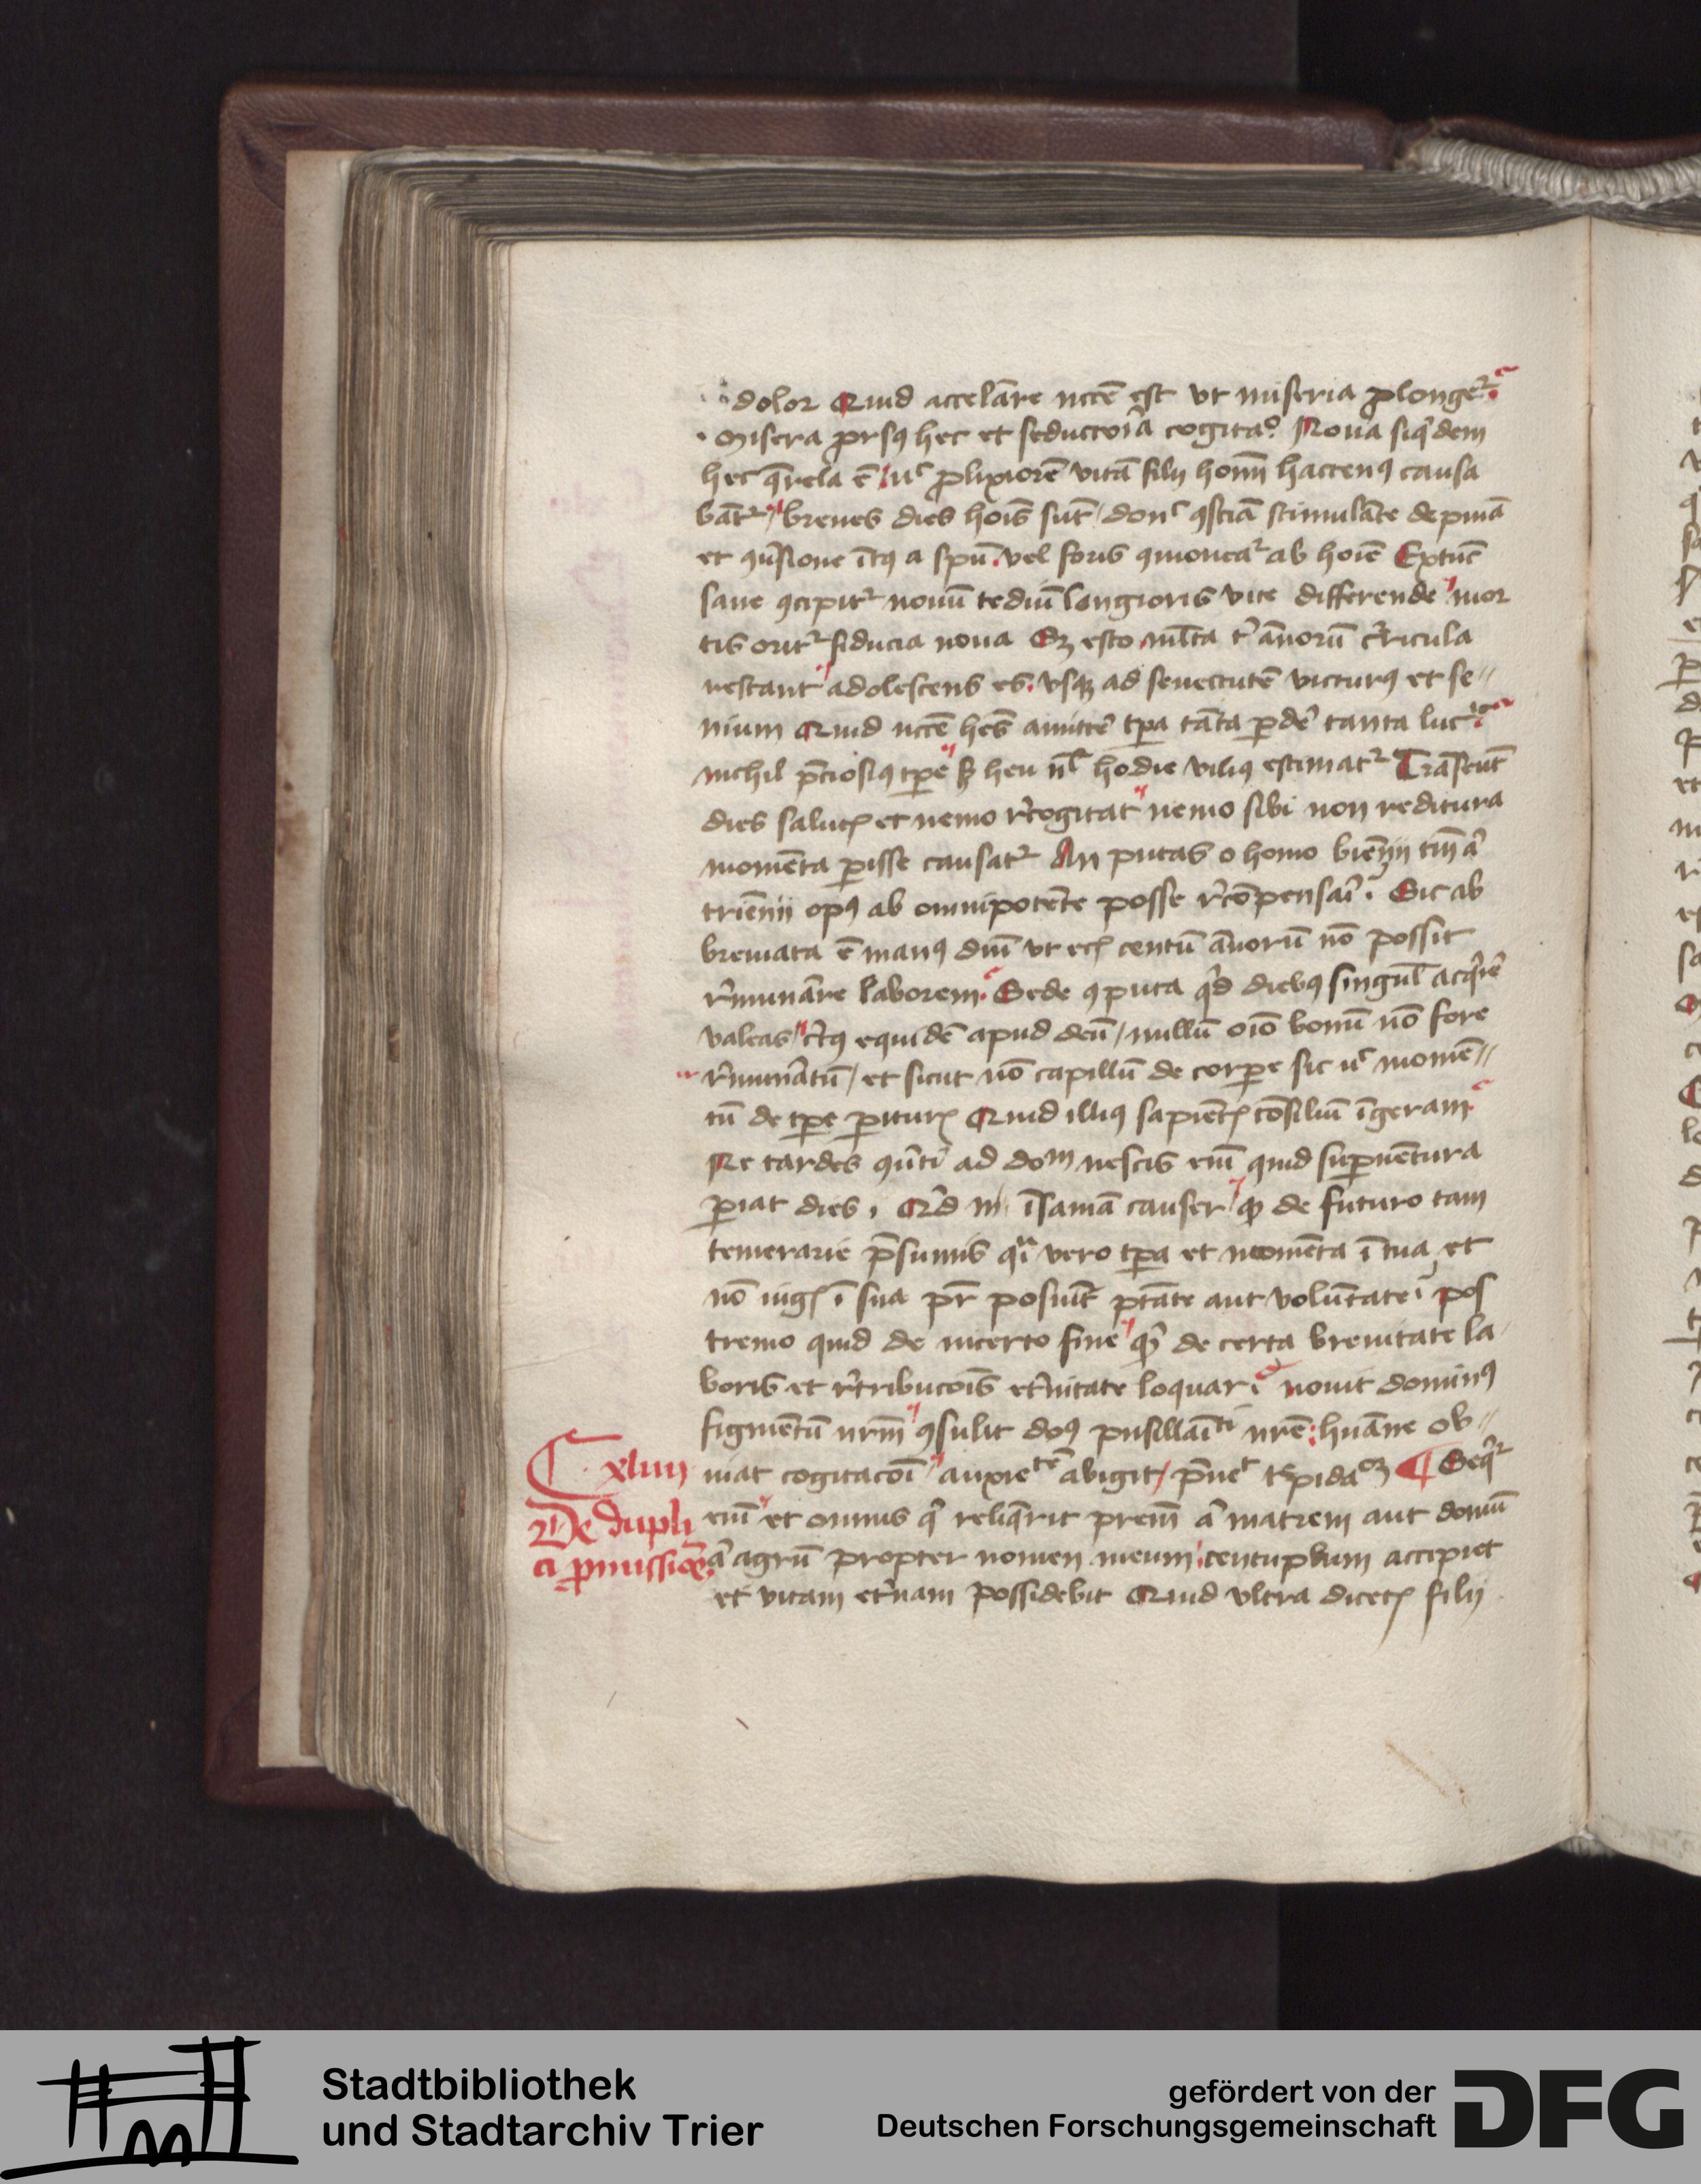 dolor Quid accelāre nccē est vt miseria ꝓlongeʳ
Misera ꝓrsꝰ hec et seductoīa cogitaᵒ Noua siqͥdem
hec q̄rela ē nᶜ ꝓlixiorē vitā filij hoīm hactenꝰ causa
bātʳ breues dies hoīs sūt donᶜ ꝯsciā stimulāte de pniā
et ꝯūsione ītꝰ a spū vel foris ꝯmoueaʳ ab hoīe Extūc
sane ꝯcipitʳ nouū tediū longioris vite differende mor
tis oritʳ fiducia noua Sꝫ esto mlta tͥ ānorū cricula
restant adolescens es vsqꝫ ad senectutē victurꝰ et se
nium Quid nccē hēs amitte tp̄a tāta ꝑde tanta luc
nichil p̄ciosiꝰ tp̄e sꝫ heu nl̄ hodie viliꝰ estimatʳ Trāseūt
dies salutꝭ et nemo r̄cogitat nemo sibi non reditura
momēta ꝑisse causatʳ An putas o homo biēnij tm̄ aͥ
triēnij opꝰ ab omnipotēte posse r̄cōpensaī Sic ab
breuiata ē manꝰ dūi vt etꝭ centū ānorū nō possit
r̄munāre laborem Sede ꝯputa qͥd diebꝰ singul̄ acqͥrē
valeas c̄tꝰ equidē apud deū nullū oīo bonū nō fore
r̄munātū et sicut nō capillū de corꝑe sic nᶜ momē
tū de tp̄e ꝑiturꝭ Quid illiꝰ sapiētꝭ cōsiliū īgeram
Ne tardes ꝯūti ad doᵐ nescis enī quid suꝑuētura
ꝑiat dies Qͥd m īsaniā causer qꝫ de futuro tam
temerarie p̄sumis qͥ vero tp̄a et momēta ī tua et
nō mgꝭ ī sua pr̄ posuit ptāte aut volūtate pos
tremo quid de incerto fine qͥ de certa breuitate la
boris et r̄tribucōis et̄nitate loquar nouit dominꝰ
figmētū nrm̄ ꝯsulit dōꝰ pusillaīᵗⁱ nrē huāne ob
uiat cogitacōi anxieᵗᵉ abigit p̄ueᵗ tͤpidaᵒꝫ ¶ Seqͥʳ
enī et omnis qͥ reliq̄rit prem̄ aͥ matrem aut domū
aͥ agrū propter nomen meum centuplum accipiet
et vitam et̄nam possidebit Quid vltra dicetꝭ filij
C xliiij
De dupli
ci ꝓmissiōe
Stadtbibliothek
und Stadtarchiv Trier
gefördert von der
Deutschen Forschungsgemeinschaft
DFG